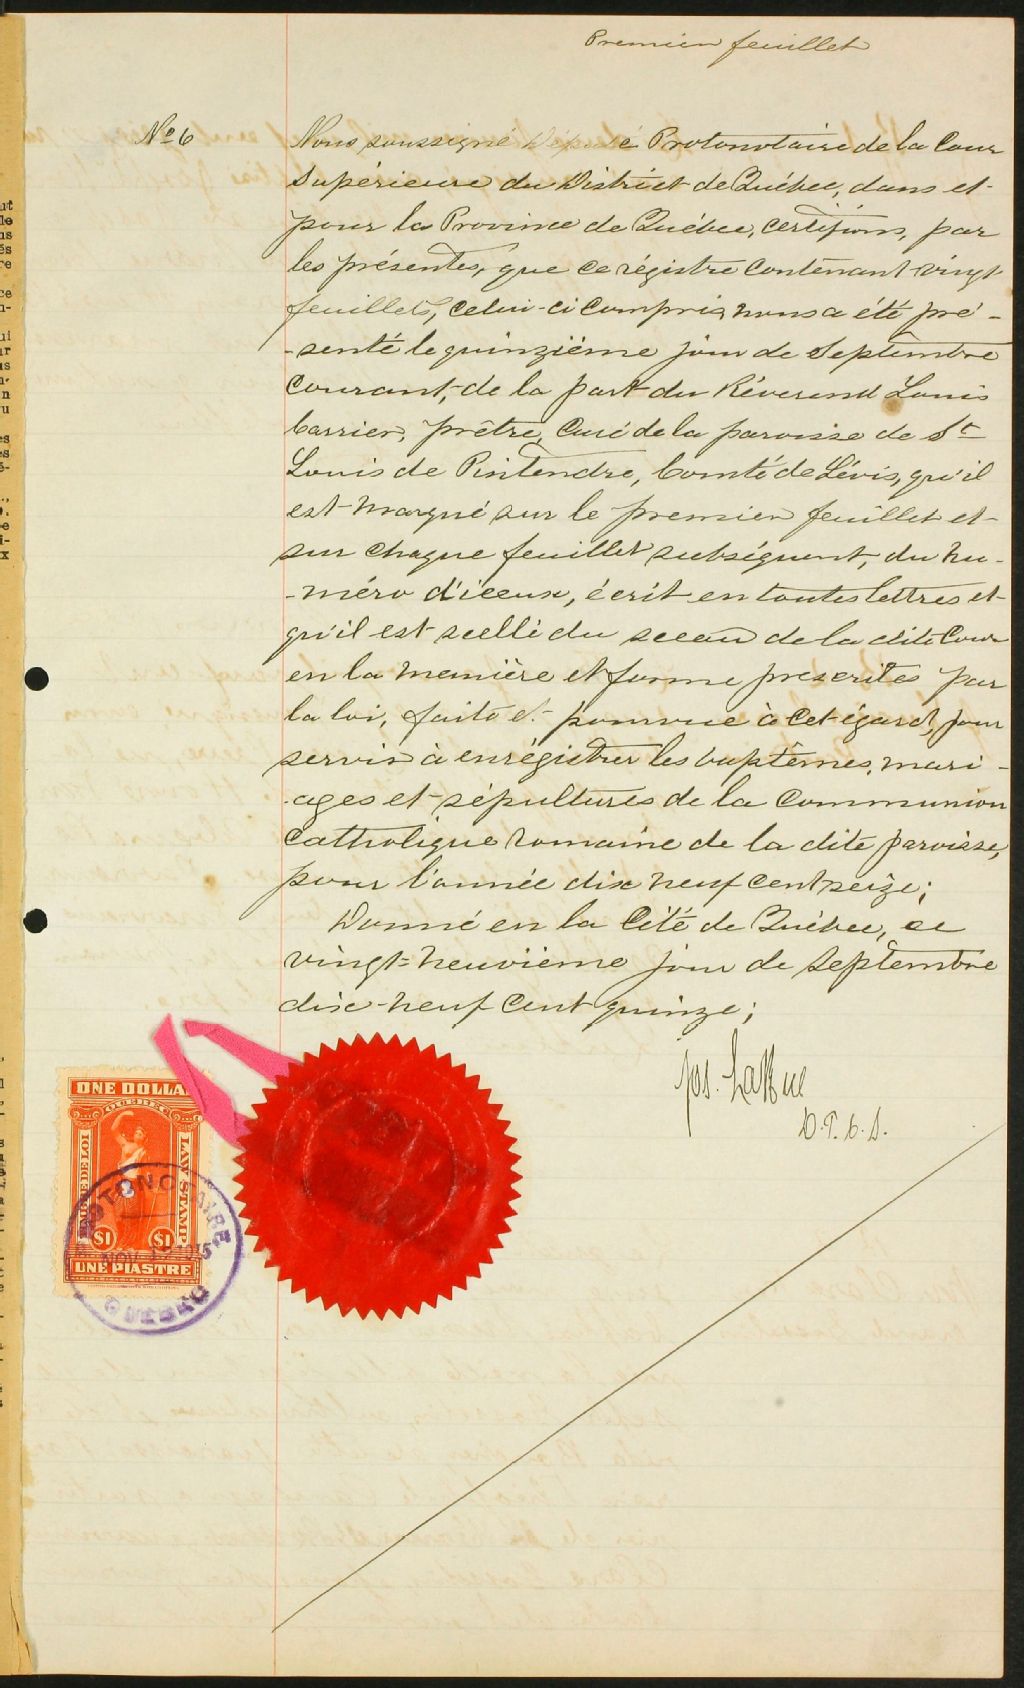 Premier feuillet
No 6
Nous soussigné Député Protonotaire de la Cour
Supérieure du District de Québec, dans et
pour la Province de Québec, certifions, par
les présentes, que ce régistre contenant vingt
feuillets, celui-ci compris, nous a été pré-
-senté le quinzième jour de Septembre
courant, de la part du Révérend Louis
Carrier, prêtre, Curé de la paroisse de St
Louis de Pintendre, Comté de Lévis, qu'il
est marqué sur le premier feuillet et
sur chaque feuillet subséquent, du nu-
-méro d'iceux, écrit en toutes lettres et
qu'il est scellé du sceau de la dite Cour
en la manière et forme prescrites par
la loi, faite et pourvue à cet égard, pour
servir à enrégistrer les baptêmes, mari-
-ages et sépultures de la Communion
Catholique romaine de la dite paroisse,
pour l'année dix neuf cent seize;
Donné en la Cité de Québec, ce
vingt-neuvième jour de Septembre
dix-neuf cent quinze;
Jos. LaRue
D.P.C.S.
ONE DOLLA
QUEBEC
LAW STAMP
$1 $1
UNE PIASTRE
PROTONOTAIRE
QUEBEC